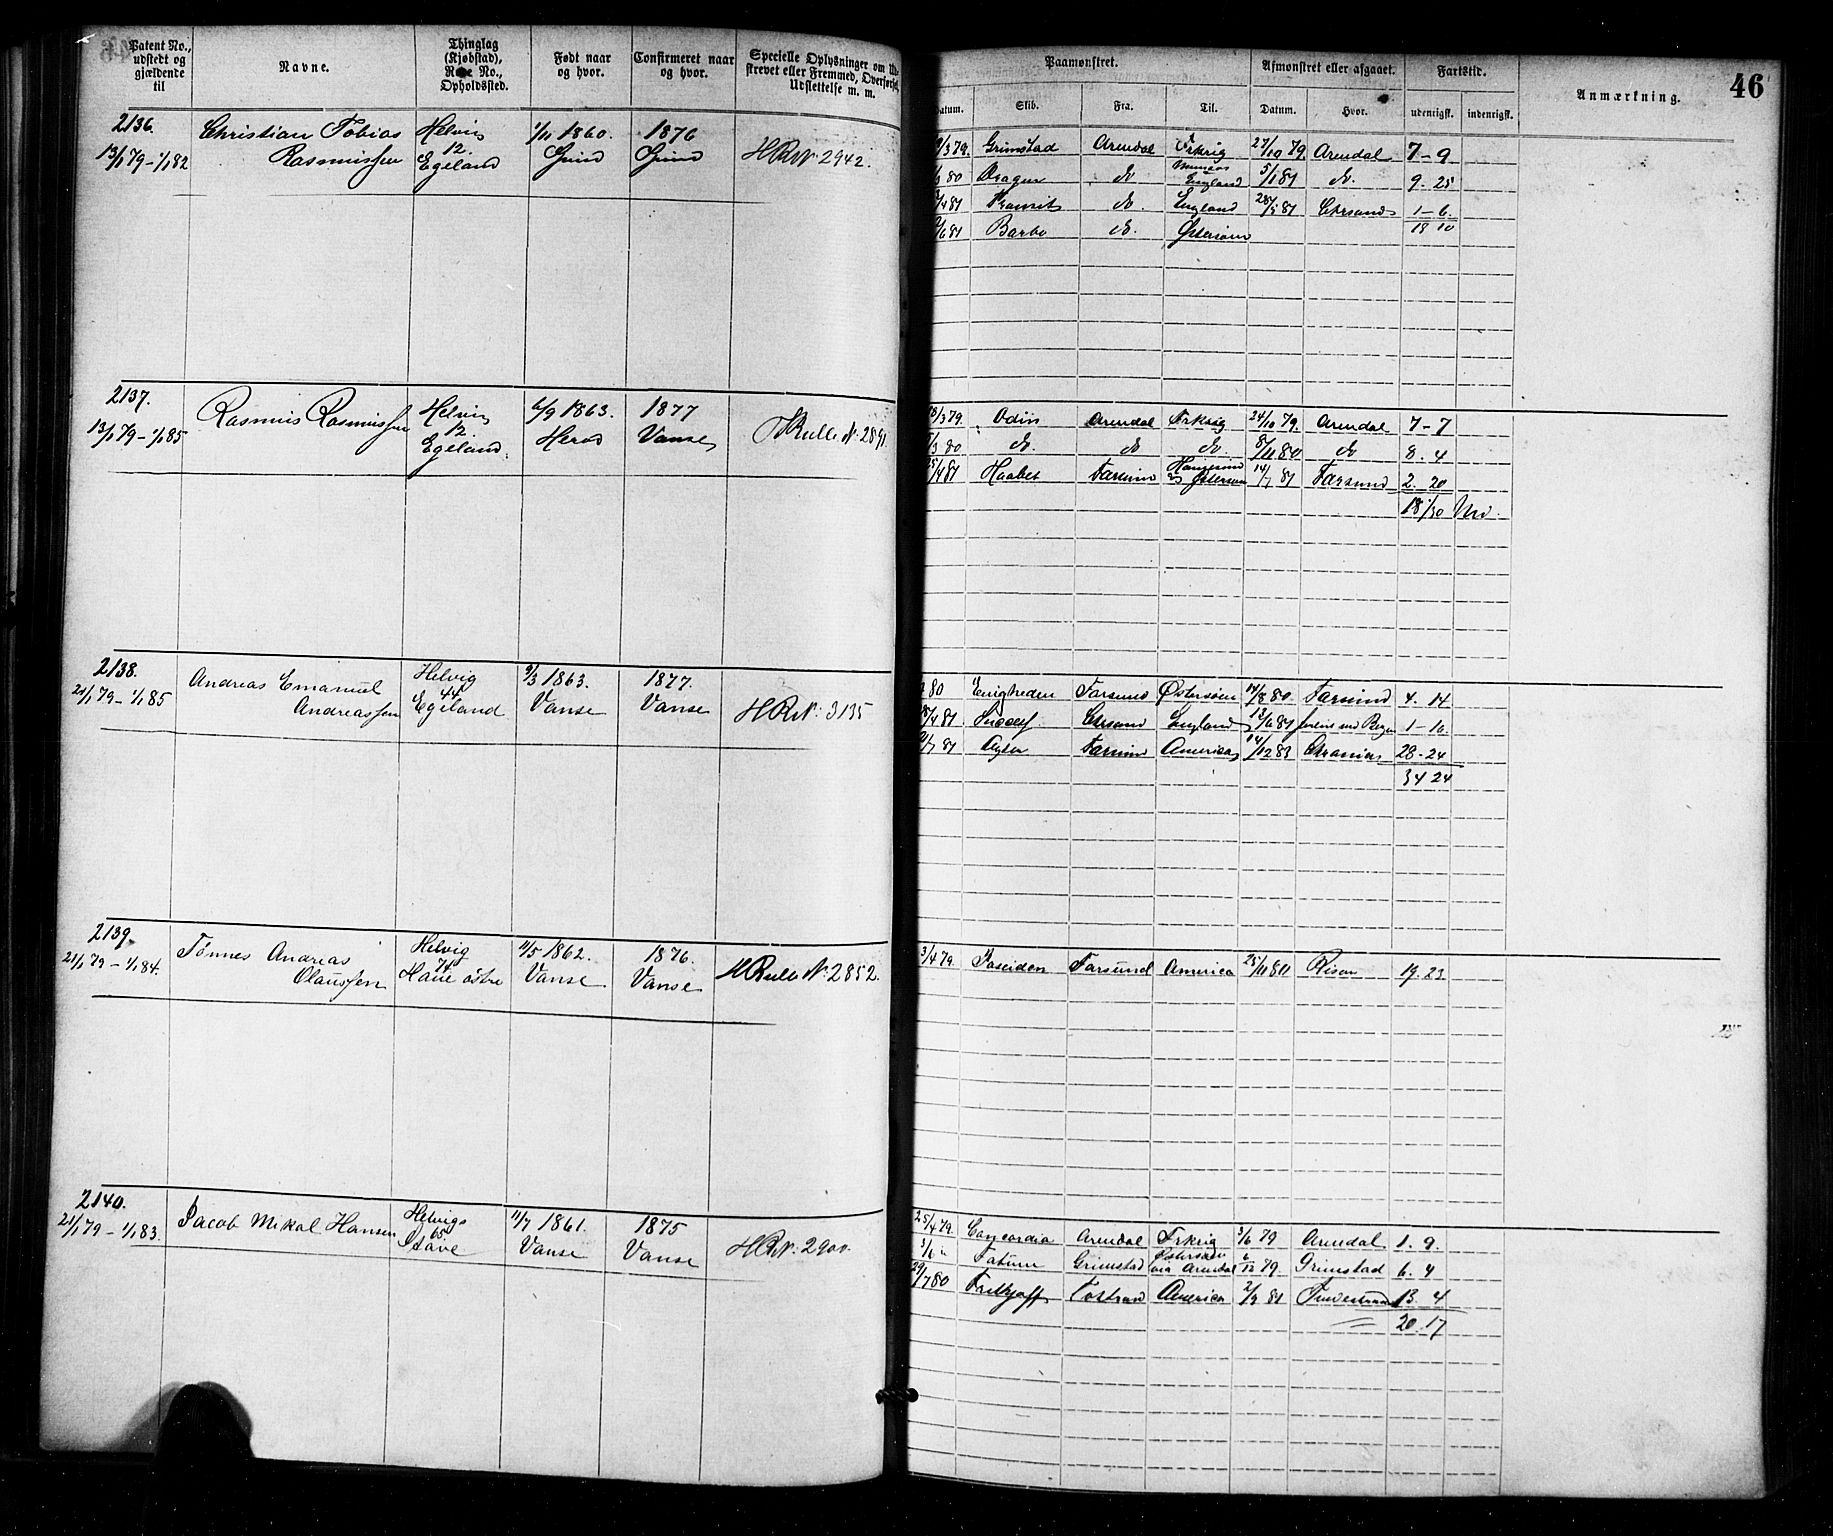 46
Patent No., udstedt og gjældende til
Navne.
Thinglag (Kjøbstad), Rode No., Opholdssted.
Født naar og hvor.
Confirmeret naar og hvor.
Specielle Oplysninger om
strevet eller Fremmed, Overførsel,
Udslettelse m. m.
Paamønstret.
Afmønstret eller afgaaet.
Fartstid.
Anmærkning.
Datum. Skib. Fra. Til. Datum. Hvor. udenrigsk. indenrigsk.
2136. Christian Tobias Helvig 1/11 1860. 1876
13/1 79 - 1/1 82 Rasmussen 12. Egeland HRN 2942.
3 79. Grimstad Arendal Frkrig 27/10 79. Arendal 7 - 9
80 Dragen do England 5/1 81 do. 9. 25
4 81 Transit do. England 28/5 81 Chrsand 1 - 6.
6 81 Barbo do. Østersøen 18 10
2137. Rasmus Rasmussen Helvig 6/9 1863. 1877
13/1 79 - 1/1 85 12 Egeland. Herad Vanse HRulle N. 2891
3 79. Odin Arendal Frkrig 24/10 79. Arendal 7 - 7
3 80 do. do do. 8/11 80 do 8. 4
4 81 Haabet Farsund Østersøen 14/7 81 Farsund 2. 20
2138. Andreas Emanuel Helvig 9/3 1863. 1877.
21/1 79 - 1/1 85 Andreassen 44 Egeland Vanse Vanse HRN. 3135
80 Enigheden Farsund Østersøen 14/8 80. Farsund 4. 14
4 81 Chrsand England 12/6 81 1 - 16.
7 81 Farsund America 14/12 83 Chrania 28 - 24
34 24
2139. Tønnes Andreas Helvig 11/5 1862. 1876.
21/1 79 - 1/1 84. Olaussen 74 Haue østre Vanse Vanse HRulle N. 2852.
3/4 79. Poseiden Farsund America 25/11 80 Risør 19. 23
2140. Jacob Mikal Hansen Helvig 11/7 1861. 1875
21/1 79 - 1/1 83. 65 Stave Vanse Vanse HRN. 2900.
25/4 79. Concordia Arendal Frkrig 3/6 79 Arendal 1. 9.
Fatum Grimstad Østersøen via Arendal 6/12 79. Grimstad 6. 4
29/7 80 Frithjoff America 2/9 81 13. 4
20. 17